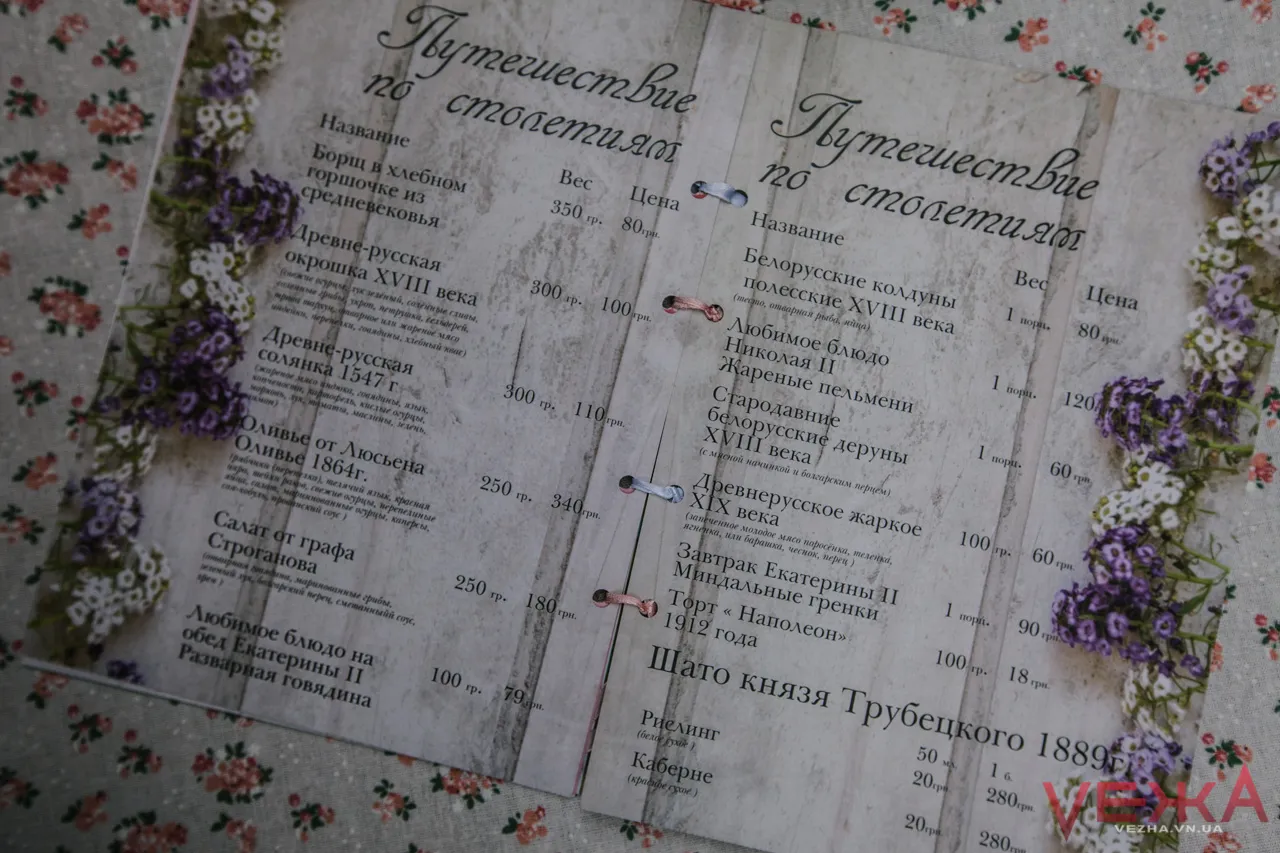 Путешествие
по столетиям
Название
Вес
Цена
Борщ в хлебном
горшочке из
средневековья
350 гр.
80грн.
Древне-русская
окрошка XVIII века
300 гр.
100грн.
Древне-русская
солянка 1547 г.
300 гр.
110грн.
Оливье от Люсьена
Оливье 1864г.
250 гр.
340грн.
Салат от графа
Строганова
250 гр.
180грн.
Любимое блюдо на
обед Екатерины II
Разварная говядина
100 гр.
79грн.
Путешествие
по столетиям
Название
Вес
Цена
Белорусские колдуны
полесские XVIII века
(тесто, отварная рыба, яйца)
1 порц.
80грн.
Любимое блюдо
Николая II
Жареные пельмени
1 порц.
120
Стародавние
белорусские деруны
XVIII века
(с мясной начинкой и болгарским перцем)
1 порц.
60грн.
Древнерусское жаркое
XIX века
(запеченное молодое мясо поросёнка, теленка,
ягнёнка, или барашка, чеснок, перец )
100 гр.
60грн.
Завтрак Екатерины II
Миндальные гренки
1 порц.
90грн.
Торт « Наполеон»
1912 года
100 гр.
18грн.
Шато князя Трубецкого 1889г.
50 мл.
1 б.
Рислинг
(белое сухое )
20грн.
280грн.
Каберне
(красное сухое )
20грн.
280грн.
VЕЖА
VEZHA.VN.UA